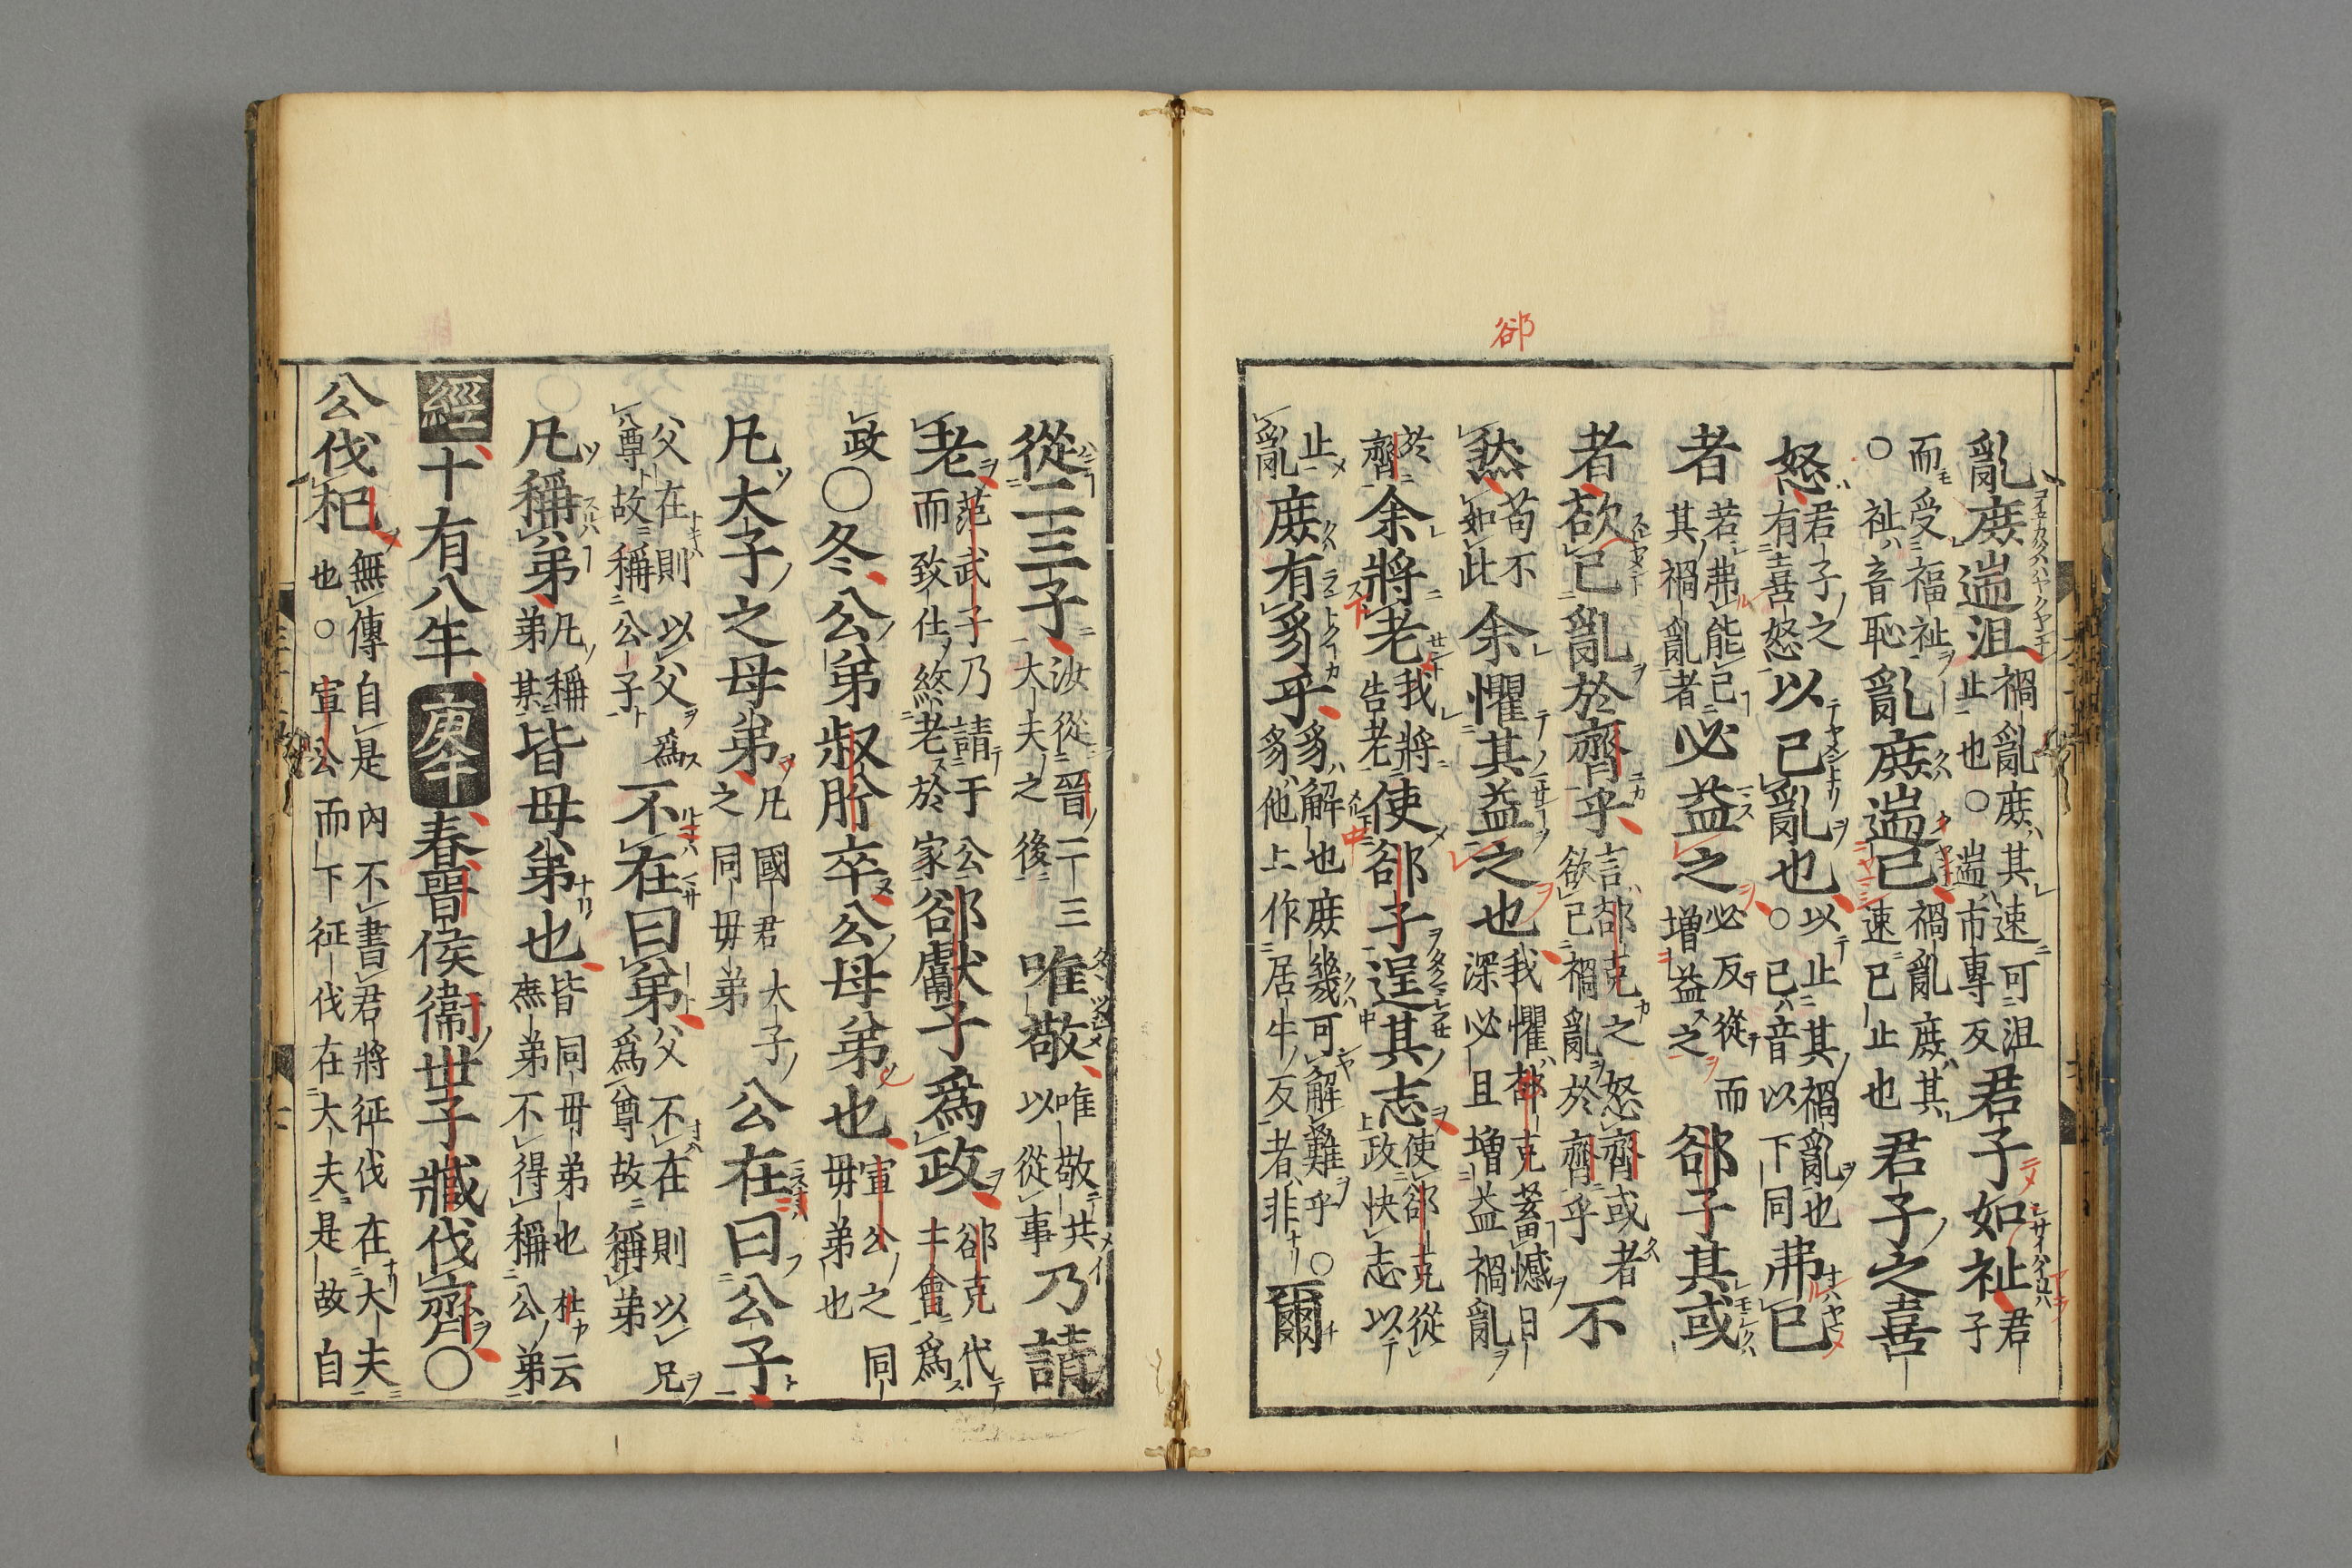 郤
亂庶遄沮禍亂庶其速可沮○遄市專反君子如祉君子
而受福祉止也○祉音恥亂庶遄已禍亂庶其速已止也君子之喜
怒君子之有喜怒以已亂也以止其禍亂也○已音以下同弗已
者若弗能已其禍亂者必益之必反從而增益之郤子其或
者欲已亂於齊乎言郤克之怒齊或者欲已禍亂於齊乎不
然苟不如此余懼其益之也我懼郤克蓄憾日深必且增益禍亂
於齊余將老我將告老使郤子逞其志使郤克從政快志以
止亂庶有豸乎豸解也庶幾可解難乎○豸他上作居牛反者非爾
從二三子汝從晉二三大夫之後唯敬唯敬以共從事乃請
老范武子乃請于公而致仕終老於家郤獻子爲政郤克代士會爲
政○冬公弟叔肸卒公母弟也宣公之同毋弟也
凡大子之母弟凡國君大子之同毋弟公在曰公子
父在則以父爲尊故稱公子不在曰弟父不在則以兄爲尊故稱弟
凡稱弟凡稱弟其皆母弟也皆同毋弟也杜云無弟不得稱公弟
經十有八年庚午春晉侯衞世子臧伐齊○
公伐杞無傳自是內不書君將征伐在大夫也○宣公而下征伐在大夫是故自